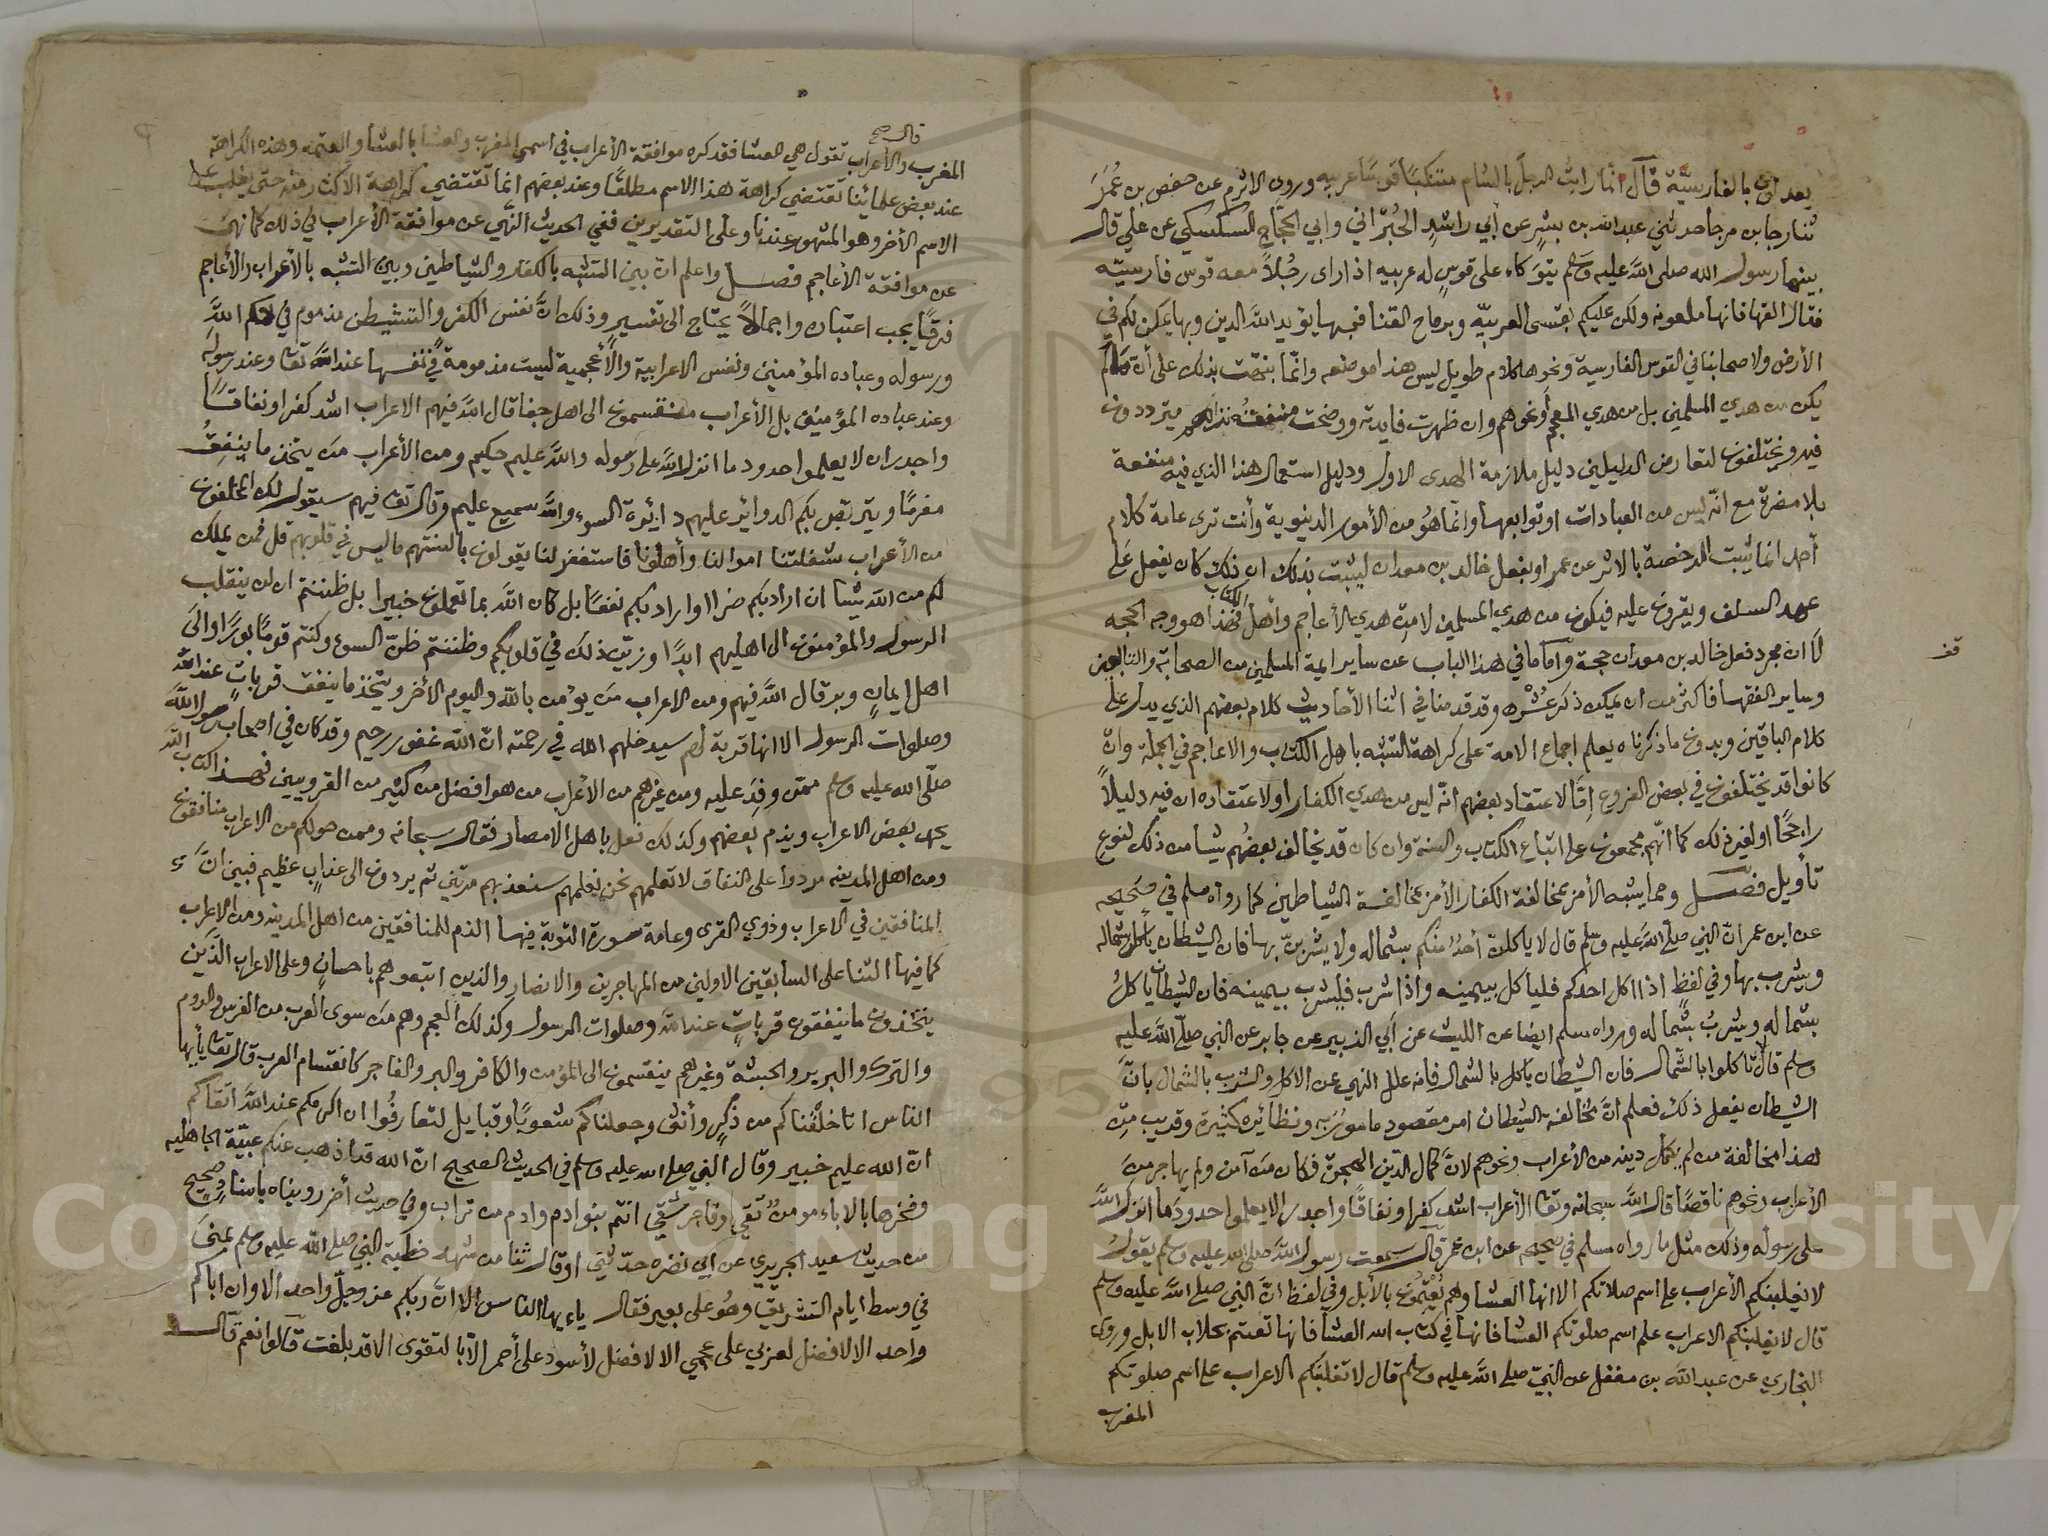 يعد لى بالفارسية قال انما رايت الرجل بالشام متنكبا قوسا عربيه وروى الاثرم عن حفص بن عمر
ثنا رجا بن مرجا حدثني عبد الله بن بشر عن أبي راشد الحبراني وابي الحجاج السكسكي عن علي قال
بينما رسول الله صلى الله عليه وسلم يتوكاء على قوس له عربيه اذا راى رجلا معه قوس فارسيته
فقال القها فانها ملعونه ولكن عليكم بقسى العربيه وبرماح القنا فبها يؤيد الله الدين وبها يمكن لكم في
الأرض ولا صحابنا في القوس الفارسية ونحوها كلام طويل ليس هذا موضعه وانما نبهت بذلك على أن مالم
يكن من هدي المسلمين بل من هدي العجم أو نحوهم وان ظهرت فايدته ووضحت منفعته تراهم يترددون
فيه ويختلفون لتعارض الدليلين دليل ملازمة الهدى الاول ودليل استعمال هذا الذي فيه منفعة
بلا مضرة مع انه ليس من العبادات او توابعها وانما هو من الأمور الدنيوية وأنت ترى عامة كلام
أحمد انما يثبت الرخصة بالاثر عن عمر او بفعل خالد بن معدان ليثبت بذلك ان ذلك كان يفعل على
عهد السلف ويقرون عليه فيكون من هدي المسلمين لا من هدي الأعاجم وأهل الكتاب فهذا هو وجه الحجه
لا ان مجرد فعل خالد بن معدان حجة وأما ما في هذا الباب عن ساير ايمة المسلمين من الصحابة والتابعين
وساير الفقها فاكثر من ان يمكن ذكر عشره وقد قدمنا في اثنا الأحاديث كلام بعضهم الذي يدل على
كلام الباقين وبدون ما ذكرناه يعلم اجماع الامة على كراهة التشبه باهل الكتاب والاعاجم في الجملة وان
كانوا قد يختلفون في بعض الفروع إما لاعتقاد بعضهم انه ليس من هدي الكفار او لاعتقاده ان فيه دليلا
راجحا او لغير ذلك كما انهم مجمعون على اتباع الكتاب والسنة وان كان قد يخالف بعضهم شيا من ذلك لنوع
تأويل فصل ومما يشبه الأمر بمخالفة الكفار الأمر بمخالفة الشياطين كما رواه مسلم في صحيحه
عن ابن عمر ان النبي صلى الله عليه وسلم قال لا ياكلن أحد منكم بشماله ولا يشربن بها فان الشيطان ياكل بشماله
ويشرب بها وفي لفظ اذا اكل احدكم فلياكل بيمينه واذا شرب فليشرب بيمينه فان الشيطان ياكل
بشماله ويشرب بشماله ورواه مسلم ايضا عن الليث عن أبي الزبير عن جابر عن النبي صلى الله عليه
وسلم قال لا تاكلوا بالشمال فان الشيطان ياكل بالشمال فانه علل النهي عن الاكل والشرب بالشمال بان
الشيطان يفعل ذلك فعلم ان مخالفة الشيطان امر مقصود مامور به ونظائره كثيرة وقريب من
هذا مخالفة من لم يكمل دينه من الأعراب ونحوهم لان كمال الدين الهجرة فكان من آمن ولم يهاجر من
الأعراب ونحوهم ناقصا قال الله سبحانه وتعا الأعراب اشد كفرا ونفاقا واجدر الا يعلموا حدود ما انزل الله
على رسوله وذلك مثل ما رواه مسلم في صحيحه عن ابن عمر قال سمعت رسول الله صلى الله عليه وسلم يقول
لا يغلبنكم الأعراب على اسم صلاتكم الا انها العشا وهم يعتمون بالأبل وفي لفظ ان النبي صلى الله عليه وسلم
قال لا يغلبنكم الاعراب على اسم صلوتكم العشا فانها في كتاب الله العشا فانها تعتم بحلاب الابل وروى
البخاري عن عبد الله بن مغفل عن النبي صلى الله عليه وسلم قال لا تغلبنكم الاعراب على اسم صلوتكم
المغرب
قال صح
المغرب والأعراب تقول هي العشا فقد كره موافقة الأعراب في اسمى المغرب والعشا بالعشا والعتمه وهذه الكراهة
عند بعض علمائنا تقتضي كراهة هذا الاسم مطلقا وعند بعضهم انما تقتضي كراهة الاكثار منه حتى يغلب على
الاسم الأخر وهو المشهور عندنا وعلى التقديرين ففي الحديث النهي عن موافقة الأعراب في ذلك كما نهى
عن موافقة الأعاجم فصل واعلم ان بين التشبه بالكفار والشياطين وبين التشبه بالأعراب والأعاجم
فرقا يجب اعتباره واجمالا يحتاج الى تفسير وذلك ان نفس الكفر والتشيطن مذموم في حكم الله
ورسوله وعباده المؤمنين ونفس الاعرابية والأعجمية ليست مذمومة في نفسها عند الله تعا وعند رسوله
وعند عباده المؤمنين بل الأعراب منقسمون الى اهل جفا قال الله فيهم الاعراب اشد كفرا ونفاقا
واجدر ان لا يعلموا حدود ما انزل الله على رسوله والله عليم حكيم ومن الأعراب من يتخذ ما ينفق
مغرما ويتربص بكم الدوائر عليهم دائرة السوء والله سميع عليم وقال تعا فيهم سيقول لك المخلفون
من الأعراب شغلتنا اموالنا وأهلونا فاستغفر لنا يقولون بالسنتهم ما ليس في قلوبهم قل فمن يملك
لكم من الله شيا ان اراد بكم ضرا او اراد بكم نفعا بل كان الله بما تعملون خبيرا بل ظننتم ان لن ينقلب
الرسول والمؤمنون الى اهليهم ابدا وزين ذلك في قلوبكم وظننتم ظن السوء وكنتم قوما بورا والى
اهل ايمان وبر قال الله فيهم ومن الاعراب من يؤمن بالله واليوم الأخر ويتخذ ما ينفق قربات عند الله
وصلوات الرسول الا انها قربة لهم سيدخلهم الله في رحمته ان الله غفور رحيم وقد كان في اصحاب رسول الله
صلى الله عليه وسلم ممن وفد عليه ومن غيرهم من الأعراب من هو افضل من كثير من القرويين فهذا كتاب الله
يحمد بعض الاعراب ويذم بعضهم وكذلك فعل باهل الامصار فقال سبحانه وممن حولكم من الاعراب منافقون
ومن اهل المدينه مردوا على النفاق لا تعلمهم نحن نعلمهم سنعذبهم مرتين ثم يردون الى عذاب عظيم فبين ان
المنافقين في الاعراب وذوي القرى وعامة سورة التوبة فيها الذم للمنافقين من اهل المدينه ومن الاعراب
كما فيها الثنا على السابقين الاولين من المهاجرين والانصار والذين اتبعوهم باحسان وعلى الاعراب الذين
يتخذون ما ينفقون قربات عند الله وصلوات الرسول وكذلك العجم وهم من سوى العرب من الفرس والروم
والترك والبربر والحبشة وغيرهم ينقسمون الى المؤمن والكافر والبر والفاجر كانقسام العرب قال تعا يأيها
الناس انا خلقناكم من ذكر وأنثى وجعلناكم شعوبا وقبايل لتعارفوا ان اكرمكم عند الله اتقاكم
ان الله عليم خبير وقال النبي صلى الله عليه وسلم في الحديث الصحيح ان الله قد اذهب عنكم عبية الجاهليه
وفخرها بالاباء مومن تقي او فاجر شقي انتم بنوا ادم وادم من تراب وفي حديث أخر رويناه باسناد صحيح
من حديث سعيد الجريري عن ابي نضره حدثني او قال ثنا من شهد خطبة النبي صلى الله عليه وسلم بمنى
في وسط ايام التشريق وهو على بعير فقال ياءيها الناس الا ان ربكم عز وجل واحد الا وان اباكم
واحد الا لا فضل لعربي على عجمي الا لا فضل لأسود على أحمر الا بالتقوى الا قد بلغت قالوا نعم قال
Copyright © King Saud University